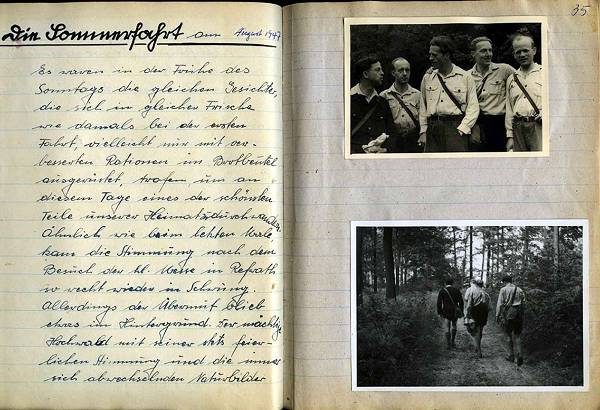 Die Sommerfahrt am August 1947
35
Es waren in der Frühe des
Sonntags die gleichen Gesichter,
die sich in gleicher Frische
wie damals bei der ersten
Fahrt, vielleicht nur mit ver-
besserten Rationen im Brotbeutel
ausgerüstet, trafen, um an
diesem Tage eines der schönsten
Teile unserer Heimat zu durchwandern.
Ähnlich wie beim letzten Male
kam die Stimmung nach dem
Besuch der hl. Messe in Refrath
so recht wieder in Schwung.
Allerdings der Übermut blieb
etwas im Hintergrund. Der mächtige
Hochwald mit seiner stets feier-
lichen Stimmung und die immer
sich abwechselnden Naturbilder